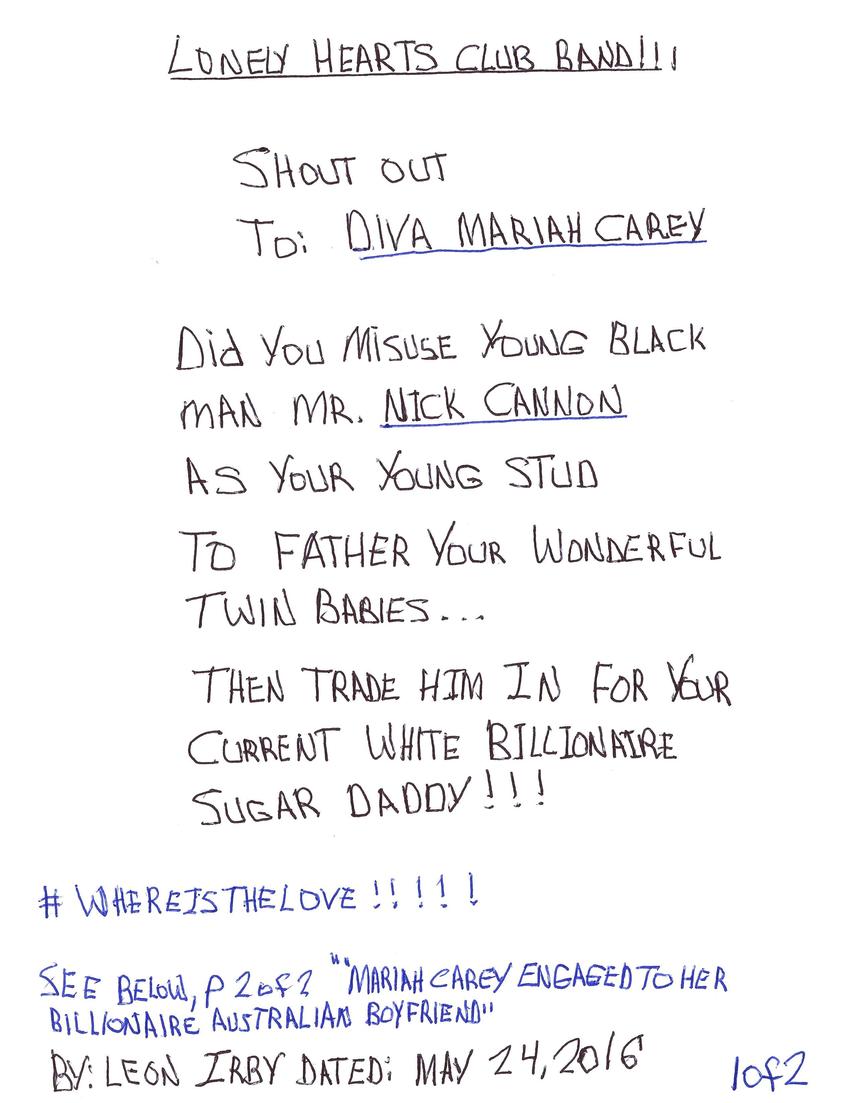 LONELY HEARTS CLUB BAND!!!
SHOUT OUT
TO: DIVA MARIAH CAREY
Did YOU MISUSE YOUNG BLACK
MAN MR. NICK CANNON
AS YOUR YOUNG STUD
TO FATHER YOUR WONDERFUL
TWIN BABIES...
THEN TRADE HIM IN FOR YOUR
CURRENT WHITE BILLIONAIRE
SUGAR DADDY!!!
# WHEREISTHELOVE !!!!!
SEE BELOW, P 2 of 2 ""MARIAH CAREY ENGAGED TO HER
BILLIONAIRE AUSTRALIAN BOYFRIEND"
BY: LEON IRBY DATED: MAY 24, 2016
1 of 2